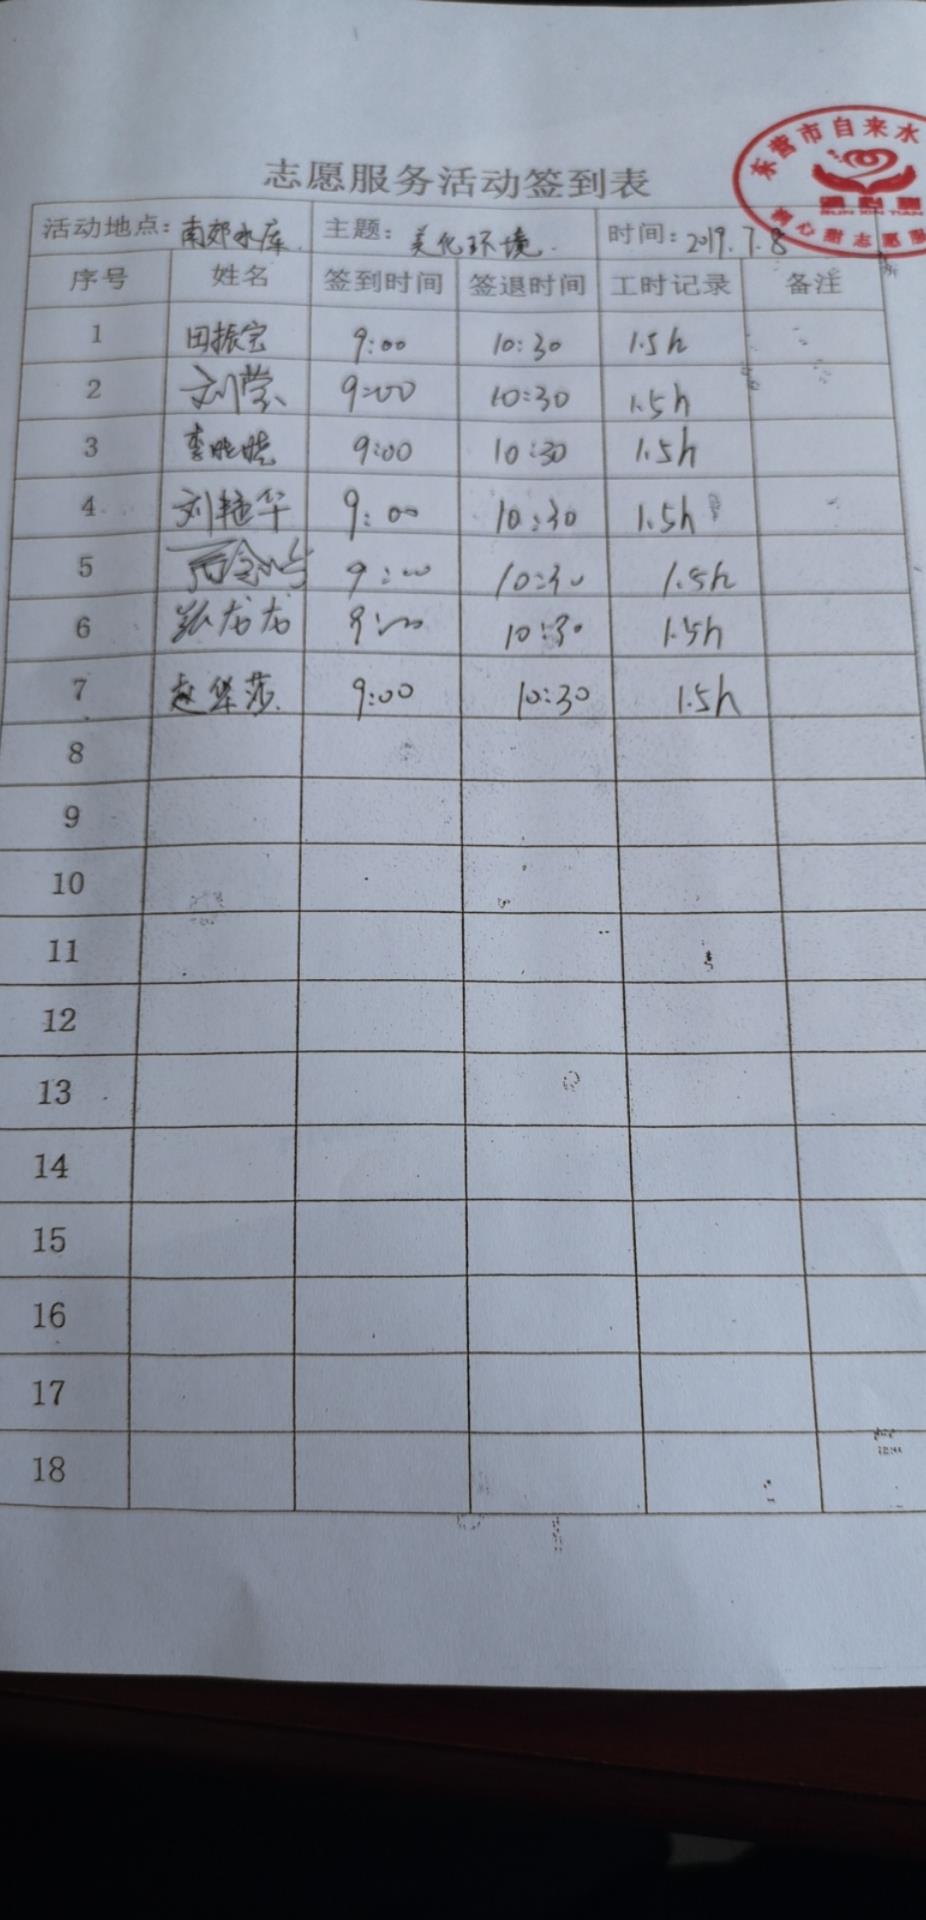 东营市自来水
润心甜志愿服
RUN XIN TIAN
志愿服务活动签到表
活动地点：南郊水库 主题：美化环境 时间：2019.7.8
序号 姓名 签到时间 签退时间 工时记录 备注
1 田振宝 9:00 10:30 1.5h
2 刘莹 9:00 10:30 1.5h
3 李晓晓 9:00 10:30 1.5h
4 刘艳华 9:00 10:30 1.5h
5 9:00 10:30 1.5h
6 张龙龙 9:00 10:30 1.5h
7 赵华莎 9:00 10:30 1.5h
8
9
10
11
12
13
14
15
16
17
18